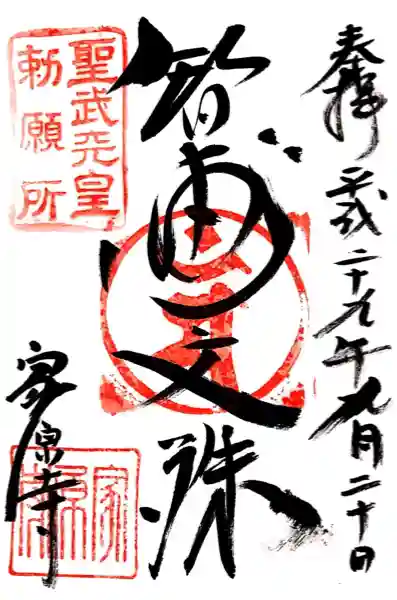 奉拝
平成二十九年九月二十日
聖武天皇
勅願所
智恵文殊
家原寺
家原寺